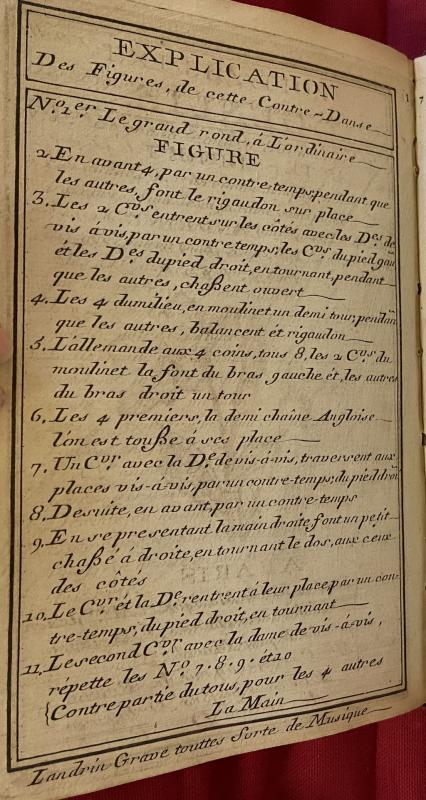 EXPLICATION
Des Figures, de cette Contre-Danse
No. 1er. Le grand rond, á L'ordinaire
FIGURE
2. En avant 4, par un contre-temps, pendant que
les autres, font le rigaudon sur place
3. Les 2 Cvrs entrent sur les côtés avec les Des de
vis á vis, par un contre temps, les Cvrs du pied gau
ét les Des du pied droit, en tournant, pendant
que les autres, chaßent ouvert
4. Les 4 du milieu, en moulinet un demi tour, pendan
que les autres, balancent ét rigaudon
5. L'allemande aux 4 coins, tous 8, les 2 Cvrs, du
moulinet la font du bras gauche ét, les autres
du bras droit un tour
6. Les 4 premiers, la demi chaîne Angloise
l'on est toußé à ses place
7. Un Cvr avec la De de vis-á-vis, traversent aux
places vis-á-vis, par un contre-temps, du pied droi
8. De suite, en avant, par un contre-temps
9. En se presentant la main droite, font un petit
chaßé á droite, en tournant le dos, aux ceux
des côtés
10. Le Cvr ét la De, rentrent á leur place, par un con-
tre-temps, du pied droit, en tournant
11. Le second Cvr avec la dame de vis-á-vis,
répette les No 7. 8. 9. ét 10
{Contre partie du tous, pour les 4 autres
La Main
Landrin Grave touttes Sorte de Musique
1
7